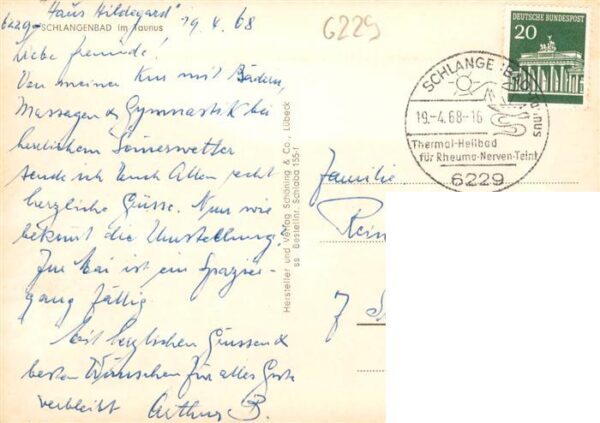 "Haus Hildegard" 19.4.68
6229 SCHLANGENBAD im Taunus
Liebe Freunde!
Von meiner Kur mit Bädern,
Massagen & Gymnastik bei
herrlichem Sonnenwetter
sende ich Euch Allen recht
herzliche Grüsse. Nun wie
bekomt die Umstellung?
Im Mai ist ein Spazier-
gang fällig.
Mit herzlichen Grüssen &
besten Wünschen für alles Gute
verbleibt Arthur B.
Hersteller und Verlag Schöning & Co., Lübeck
ss Bestellnr. Schlaba 155-f
6229
DEUTSCHE BUNDESPOST
20
SCHLANGENBAD Taunus
19.-4.68-16
Thermal-Heilbad
für Rheuma-Nerven-Teint
6229
Familie
Rein